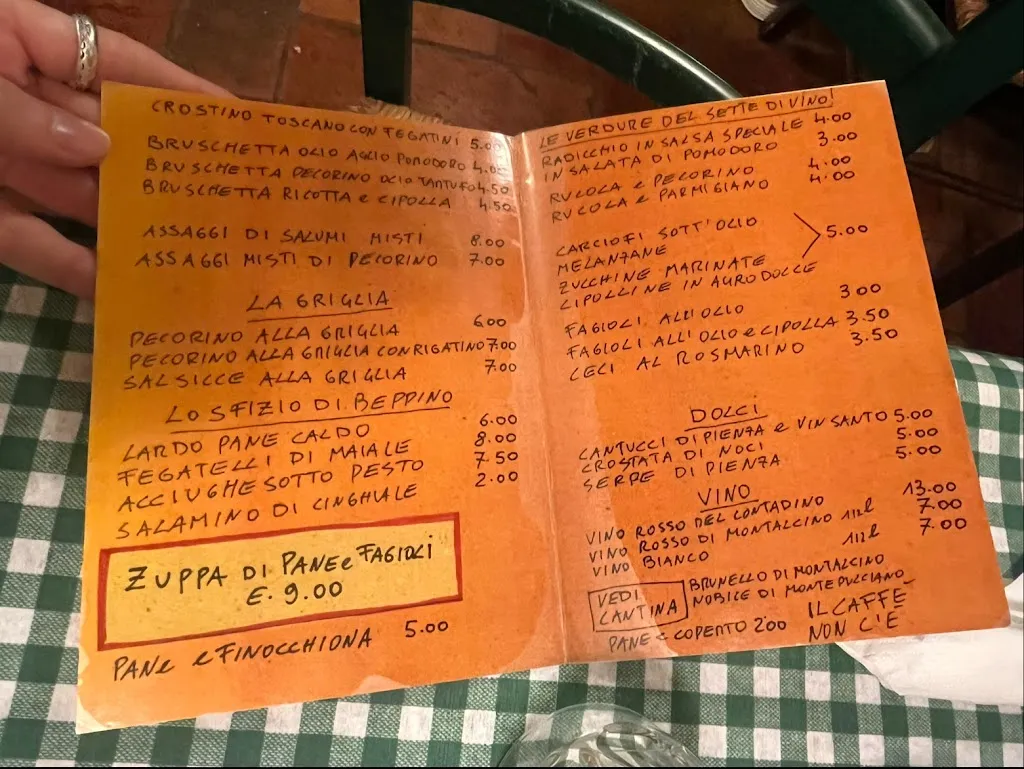 CROSTINO TOSCANO CON FEGATINI 5.00
BRUSCHETTA OLIO AGLIO POMODORO 4.00
BRUSCHETTA PECORINO OLIO TARTUFO 4.50
BRUSCHETTA RICOTTA e CIPOLLA 4.50
ASSAGGI DI SALUMI MISTI 8.00
ASSAGGI MISTI DI PECORINO 7.00
LA GRIGLIA
PECORINO ALLA GRIGLIA 6.00
PECORINO ALLA GRIGLIA CON RIGATINO 7.00
SALSICCE ALLA GRIGLIA 7.00
LO SFIZIO DI BEPPINO
LARDO PANE CALDO 6.00
FEGATELLI DI MAIALE 8.00
ACCIUGHE SOTTO PESTO 7.50
SALAMINO DI CINGHIALE 2.00
ZUPPA DI PANE e FAGIOLI
E. 9.00
PANE e FINOCCHIONA 5.00
LE VERDURE DEL SETTE DI VINO!
RADICCHIO IN SALSA SPECIALE 4.00
INSALATA DI POMODORO 3.00
RUCOLA e PECORINO 4.00
RUCOLA e PARMIGIANO 4.00
CARCIOFI SOTT'OLIO
MELANZANE 5.00
ZUCCHINE MARINATE
CIPOLLINE IN AGRODOLCE
FAGIOLI ALL'OLIO 3.00
FAGIOLI ALL'OLIO e CIPOLLA 3.50
CECI AL ROSMARINO 3.50
DOLCI
CANTUCCI DI PIENZA e VIN SANTO 5.00
CROSTATA DI NOCI 5.00
SERPE DI PIENZA 5.00
VINO
VINO ROSSO DEL CONTADINO 13.00
VINO ROSSO DI MONTALCINO 1/2 l 7.00
VINO BIANCO 1/2 l 7.00
VEDI CANTINA
BRUNELLO DI MONTALCINO
NOBILE DI MONTEPULCIANO
PANE e COPERTO 2.00
IL CAFFE
NON C'E